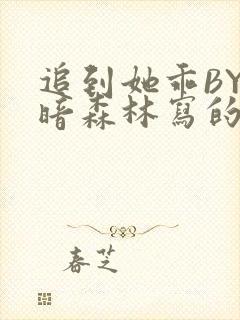 追到她乖BY
暗森林寫的
春芝